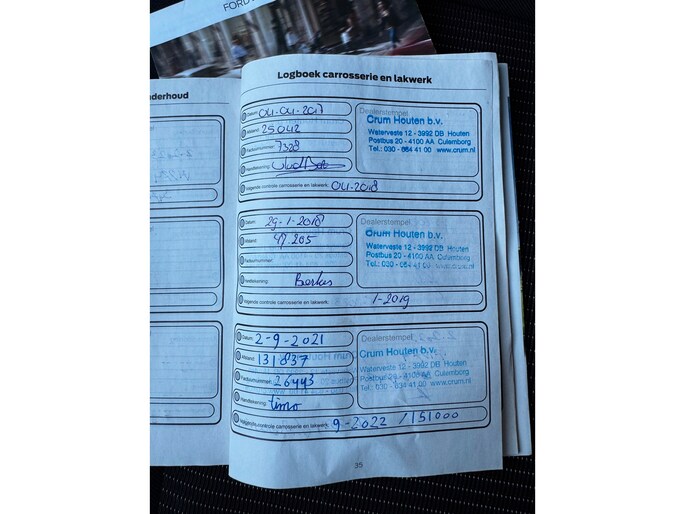 FORD
nderhoud
Logboek carrosserie en lakwerk
Datum: 04-04-2017
Afstand: 25042
Factuurnummer: 7328
Handtekening:
Volgende controle carrosserie en lakwerk: 04-2018
Dealerstempel
Crum Houten b.v.
Waterveste 12 - 3992 DB Houten
Postbus 20 - 4100 AA Culemborg
Tel.: 030 - 634 41 00 www.crum.nl
Datum: 29-1-2018
Afstand: 47.205
Factuurnummer:
Handtekening:
Volgende controle carrosserie en lakwerk: 1-2019
Dealerstempel
Crum Houten b.v.
Waterveste 12 - 3992 DB Houten
Postbus 20 - 4100 AA Culemborg
Tel.: 030 - 634 41 00 www.crum.nl
Datum: 2-9-2021
Afstand: 131837
Factuurnummer: 26443
Handtekening: timo
Volgende controle carrosserie en lakwerk: 9-2022 / 151000
Dealerstempel
Crum Houten b.v.
Waterveste 12 - 3992 DB Houten
Postbus 20 - 4100 AA Culemborg
Tel.: 030 - 634 41 00 www.crum.nl
35